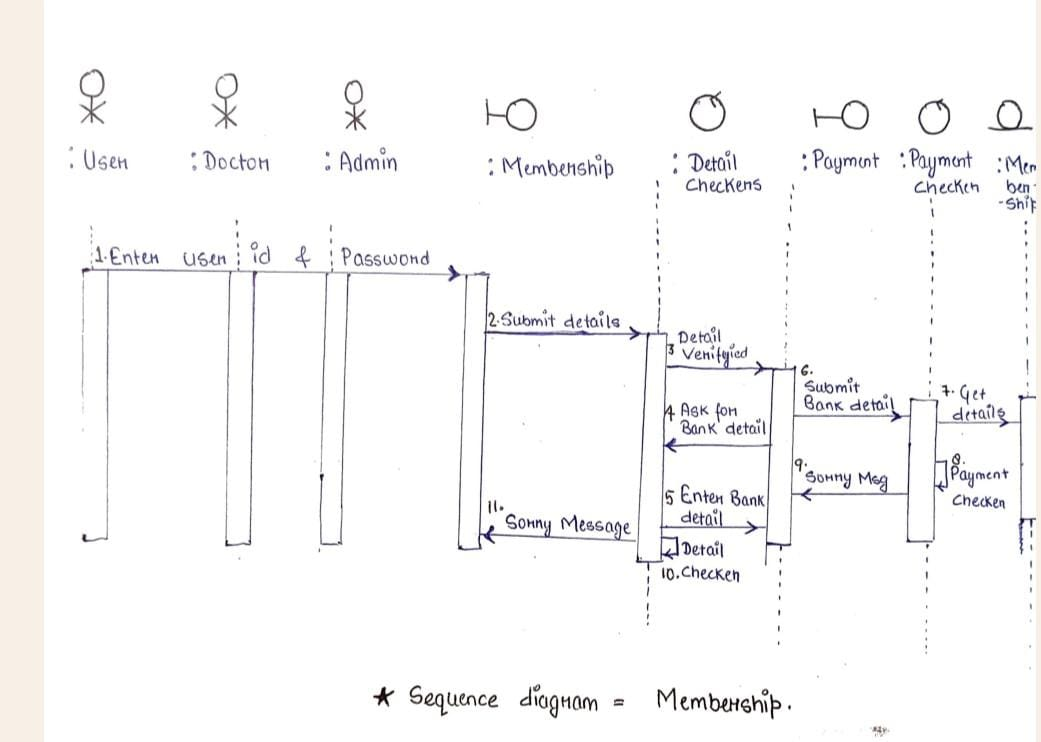 : User
: Doctor
: Admin
: Membership
: Detail
Checkers
: Payment
: Payment
Checker
: Mem
ber
-Ship
1. Enter user id & Password
2. Submit details
3 Detail
Verifyied
4 Ask for
Bank detail
5 Enter Bank
detail
6.
Submit
Bank detail
7. Get
details
8.
Payment
Checker
9.
Sorry Msg
Detail
10. Checker
11.
Sorry Message
★ Sequence diagram = Membership.